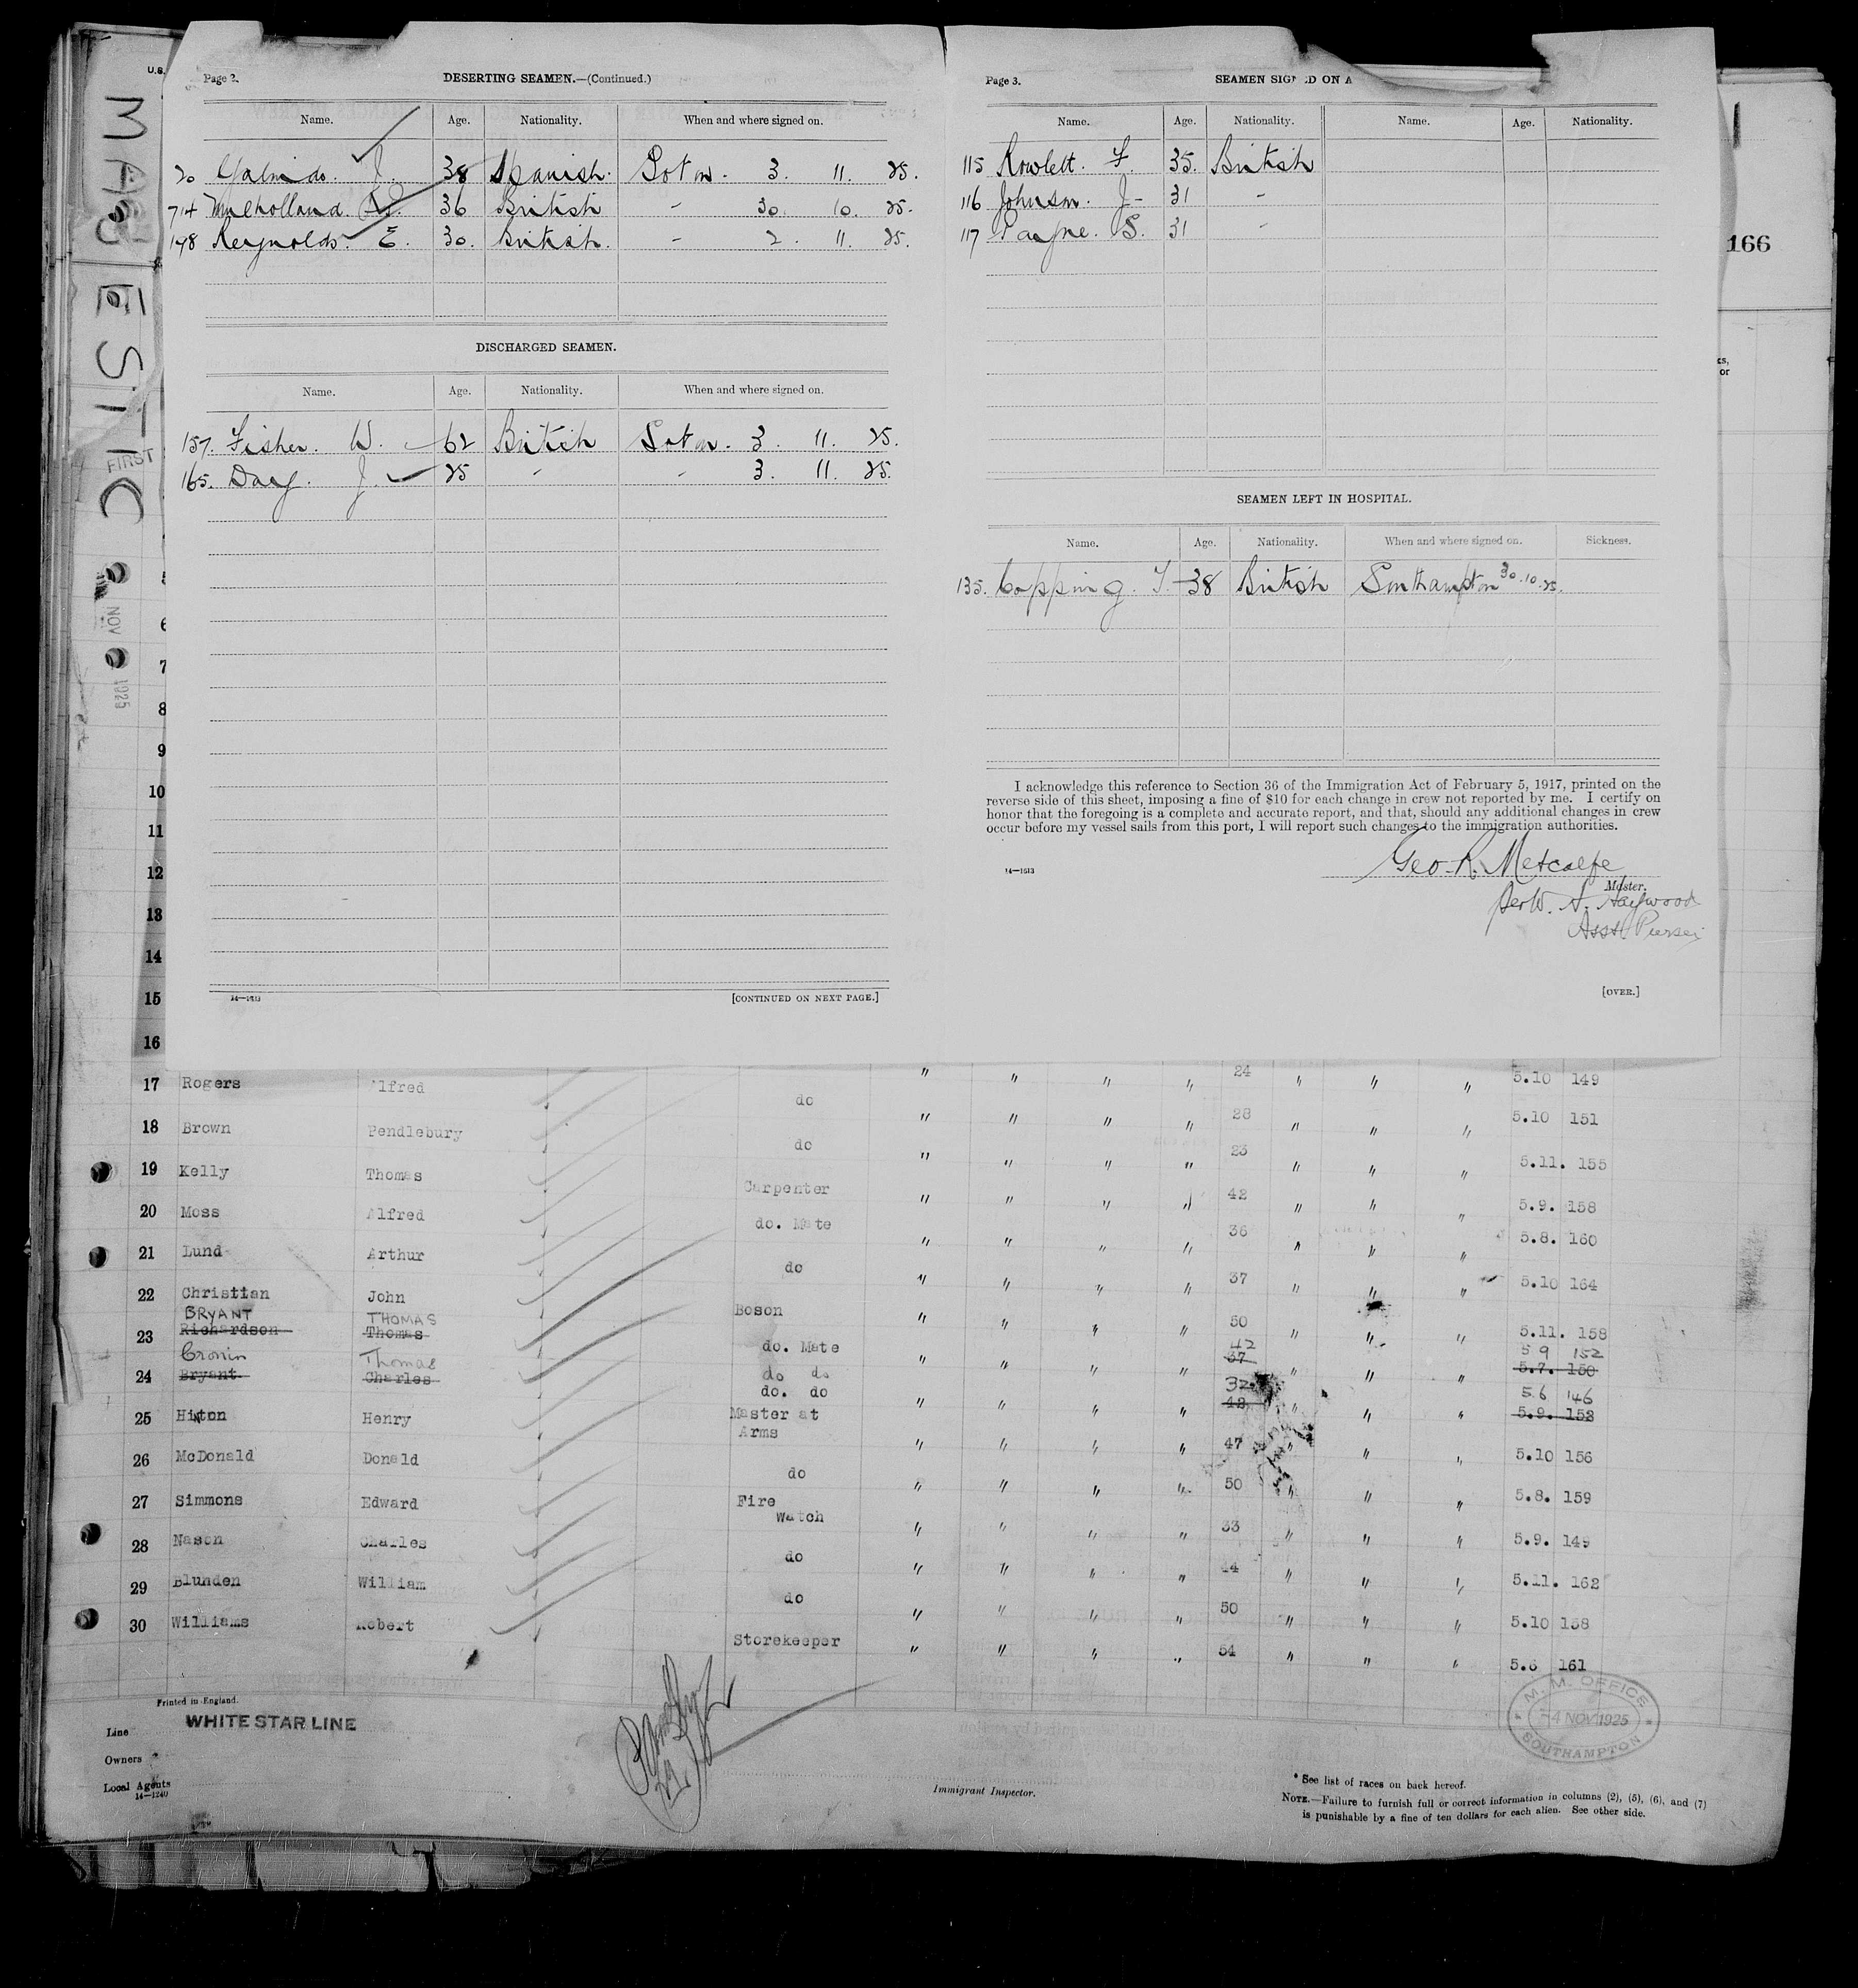 U.S.
MAJESTIC
FIRST
NOV
1925
Page 2.
DESERTING SEAMEN.—(Continued.)
Name. Age. Nationality. When and where signed on.
20 Galindo. J. 38 Spanish. Soton. 3. 11. 25.
714 Mulholland. 36 British - 30. 10. 25.
198 Reynolds. E. 30. British. - 2. 11. 25.
DISCHARGED SEAMEN.
Name. Age. Nationality. When and where signed on.
157. Fisher. W. 62 British Soton. 3. 11. 25.
165. Day. J. 25 - - 3. 11. 25.
14—1613
[CONTINUED ON NEXT PAGE.]
Page 3.
SEAMEN SIGNED ON A
Name. Age. Nationality. Name. Age. Nationality.
115 Rowlett. F. 35. British
116 Johnson. J- 31 -
117 Payne. S. 31 -
SEAMEN LEFT IN HOSPITAL.
Name. Age. Nationality. When and where signed on. Sickness.
135. Copping. T. 38 British Southampton 30.10.25.
I acknowledge this reference to Section 36 of the Immigration Act of February 5, 1917, printed on the
reverse side of this sheet, imposing a fine of $10 for each change in crew not reported by me. I certify on
honor that the foregoing is a complete and accurate report, and that, should any additional changes in crew
occur before my vessel sails from this port, I will report such changes to the immigration authorities.
14—1613
Geo. R. Metcalfe
Master.
per W. A. Haywood
Asst. Purser
[OVER.]
166
cs,
or
5
6
7
8
9
10
11
12
13
14
15
16
17 Rogers Alfred do " " " " 24 " " " 5.10 149
18 Brown Pendlebury do " " " " 28 " " " 5.10 151
19 Kelly Thomas Carpenter " " " " 23 " " " 5.11. 155
20 Moss Alfred do. Mate " " " " 42 " " " 5.9. 158
21 Lund Arthur do " " " " 36 " " " 5.8. 160
22 Christian John Boson " " " " 37 " " " 5.10 164
BRYANT THOMAS
23 Richardson Thomas do. Mate " " " " 50 " " " 5.11. 158
Cronin Thomas do do 42 5 9 152
24 Bryant Charles do. do " " " " 37 " " " 5.7. 150
32 5 6 146
25 Hinton Henry Master at Arms " " " " 42 " " " 5.9. 152
26 McDonald Donald do " " " " 47 " " " 5.10 156
27 Simmons Edward Fire Watch " " " " 50 " " " 5.8. 159
28 Nason Charles do " " " " 33 " " " 5.9. 149
29 Blunden William do " " " " 44 " " " 5.11. 162
30 Williams Robert Storekeeper " " " " 50 " " " 5.10 158
" " " " 54 " " " 5.6 161
Printed in England.
Line WHITE STAR LINE
Owners
Local Agents
14—1240
Immigrant Inspector.
M. M. OFFICE
-4 NOV 1925
SOUTHAMPTON
* See list of races on back hereof.
NOTE.—Failure to furnish full or correct information in columns (2), (5), (6), and (7)
is punishable by a fine of ten dollars for each alien. See other side.